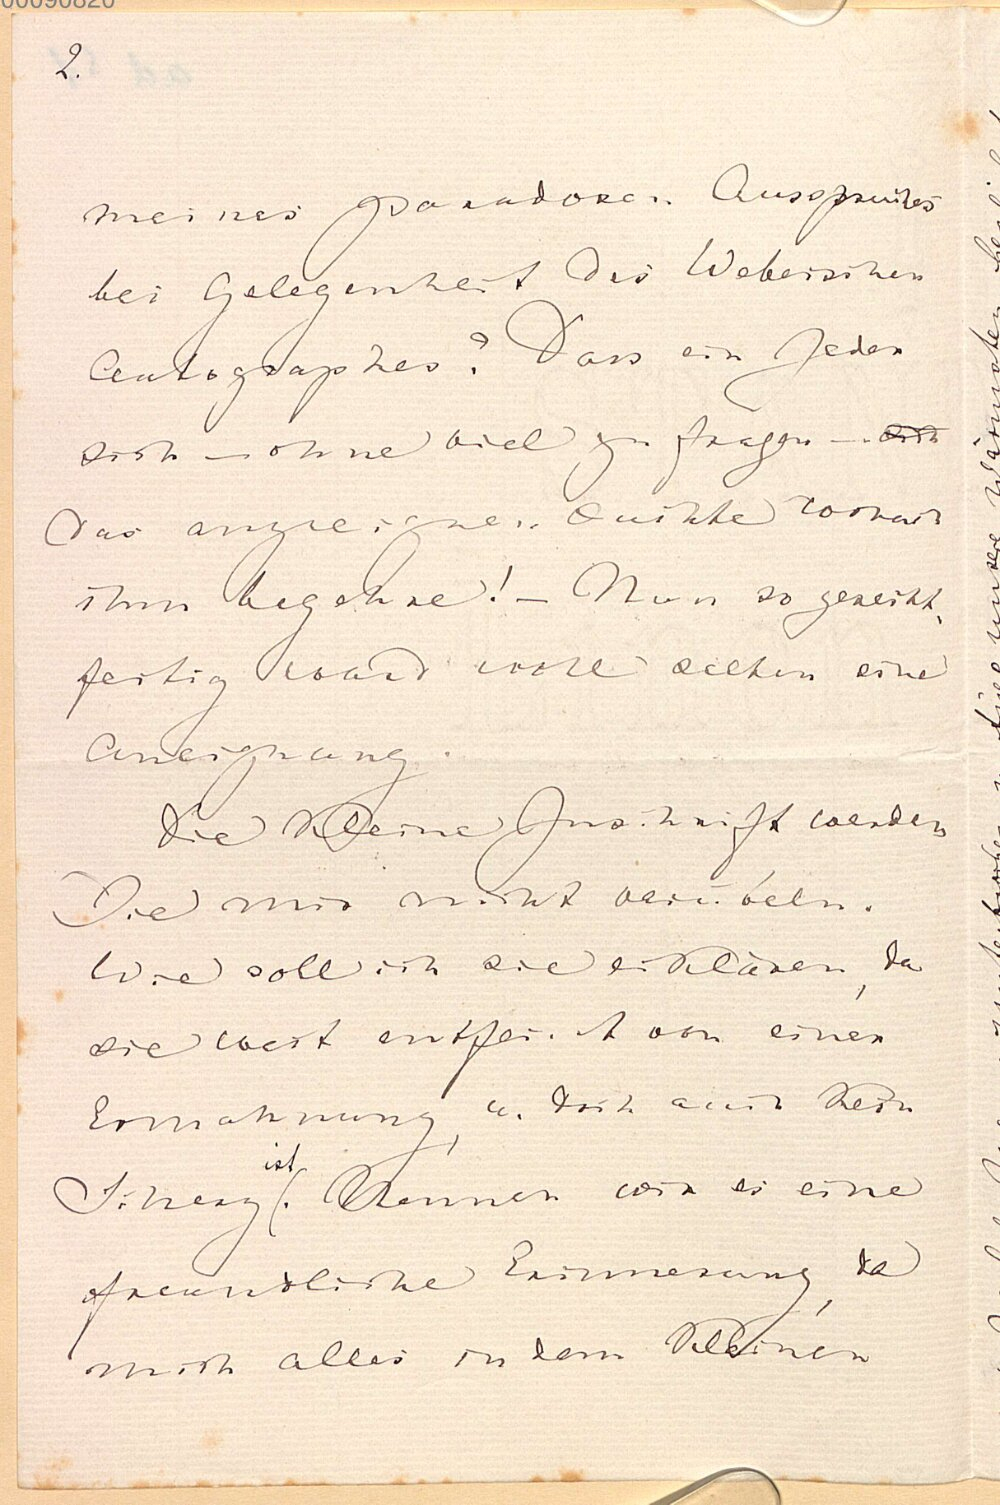 2.
meines paradoxen Ausspruches
bei Gelegenheit des Weberschen
Autographes? Dass ein Jeder
sich – ohne viel zu fragen –
das anzueignen suchte wonach
ihm begehre! – Nun so gerecht-
fertig ward wohl selten eine
Aneignung.
Die kleine Inschrift werden
Sie mir nicht verübeln.
Wie soll ich sie erklären, da
sie weit entfernt von einer
Ermahnung, u. doch auch kein
Scherz ist. Nennen wir es eine
freundliche Erinnerung, da
mich alles in dem kleinen